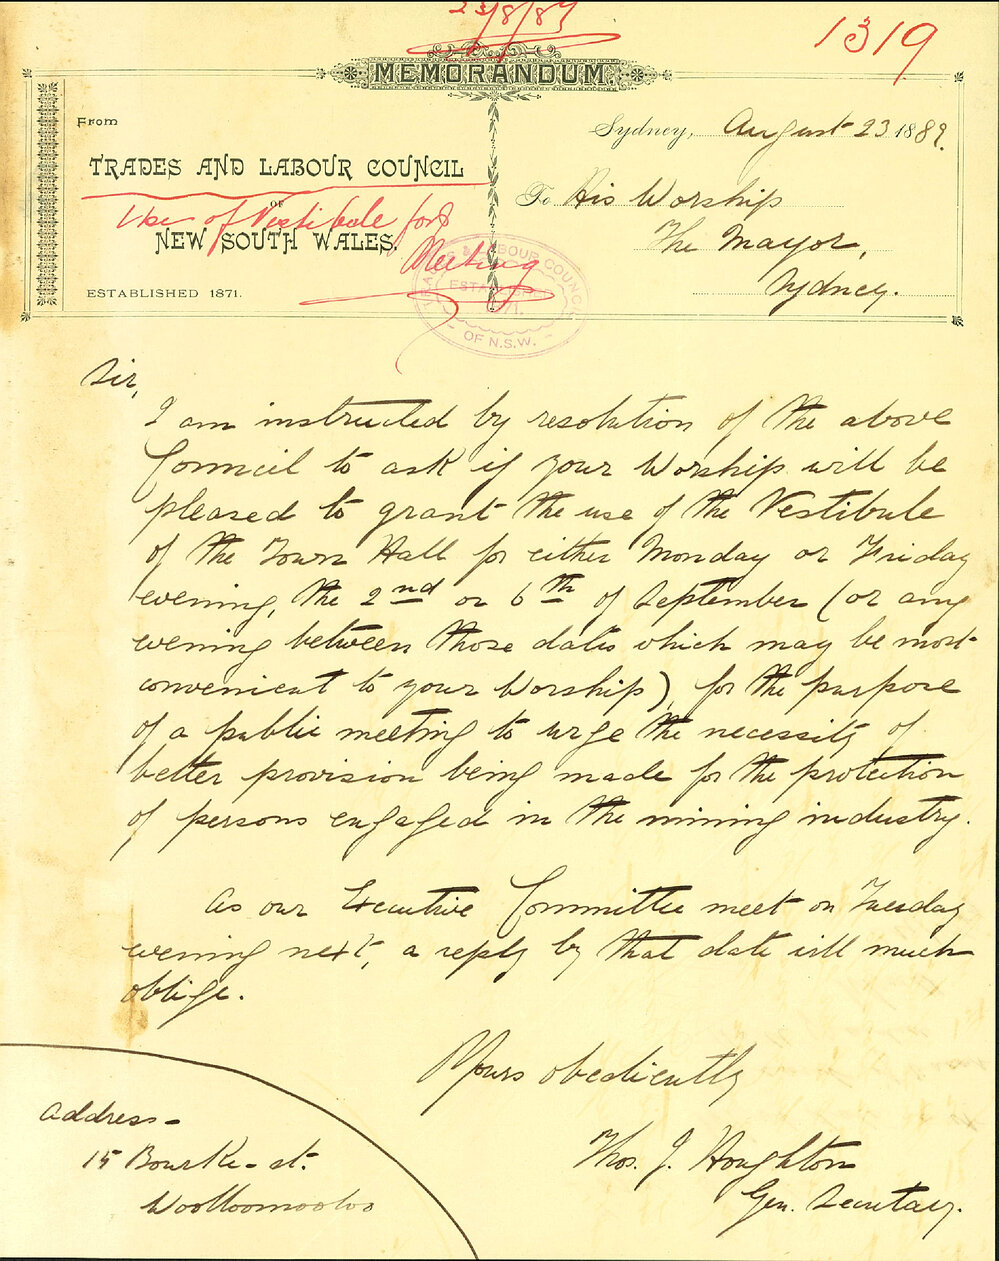 23/8/89
1319
MEMORANDUM.
From
TRADES AND LABOUR COUNCIL
OF
NEW SOUTH WALES.
ESTABLISHED 1871.
Use of Vestibule for
Meeting
Sydney, August 23 1889.
To His Worship
The Mayor,
Sydney.
TRADES & LABOUR COUNCIL
OF N.S.W.
Sir,
I am instructed by resolution of the above
Council to ask if your Worship will be
pleased to grant the use of the Vestibule
of the Town Hall for either Monday or Friday
evening, the 2nd or 6th of September (or any
evening between those dates which may be most
convenient to your Worship), for the purpose
of a public meeting to urge the necessity of
better provision being made for the protection
of persons engaged in the mining industry.
As our Executive Committee meet on Tuesday
evening next, a reply by that date will much
oblige.
Yours obediently
Thos. J. Houghton
Gen. Secretary.
Address -
15 Bourke-st.
Woolloomooloo